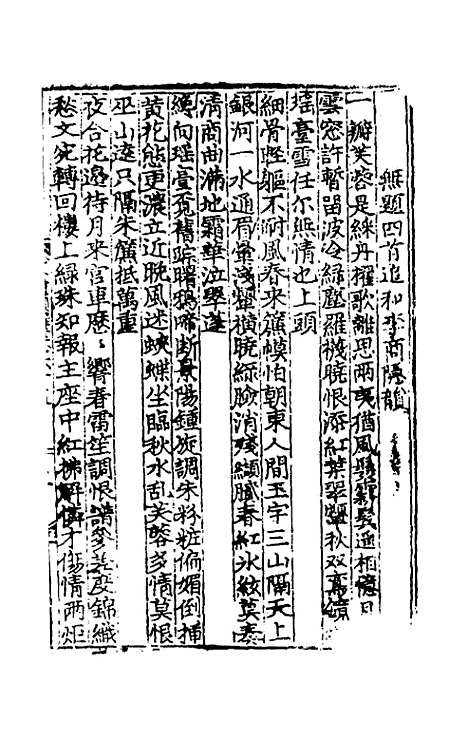 無題四首追和李商隱韻
一瓣芙蓉是綵舟櫂歌離思兩夷猶風鬟霧鬢通相憶月
雲窓許暫留波冷綠塵羅襪曉恨添紅葉翠顰秋双鬟
瑶臺雪任尔無情也上頭
細骨輕軀不耐風春來簾幙怕朝東人間玉宇三山隔天上
銀河一水通眉暈淺顰橫曉綠臉消殘纈膩春紅氷絃莫奏
清商曲滿地霜華泣翠蓬
繡向瑶臺覔舊踪曙鴉啼断景陽鍾旋調朱粉粧偏媚倒插
黄花態更濃立近晩風迷蛺蝶坐臨秋水乱芙蓉多情莫恨
巫山遠只隔朱簾抵萬重
夜合花邉待月來宫車歷歷響春雷笙調恨譜參差度錦織
愁文宛轉回樓上綠珠知報主座中紅拂解憐才傷情兩炬